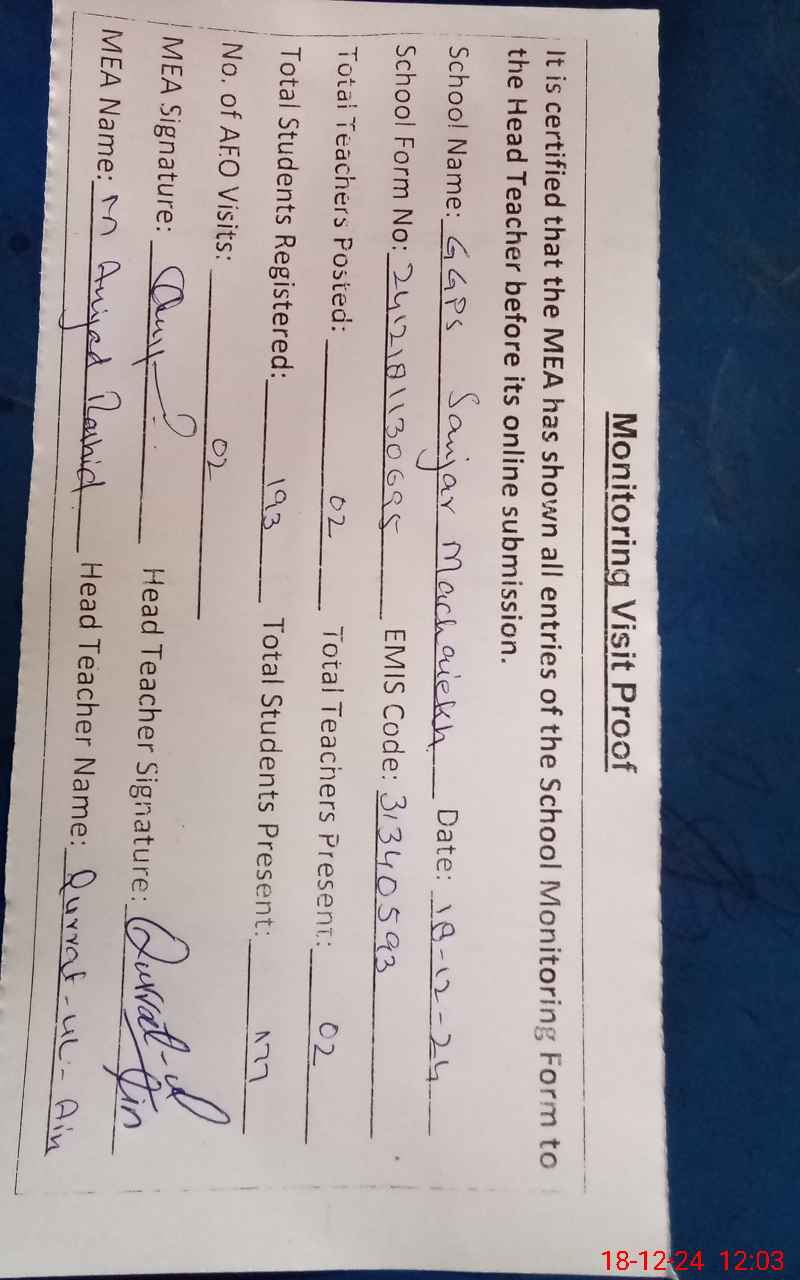 Monitoring Visit Proof
It is certified that the MEA has shown all entries of the School Monitoring Form to
the Head Teacher before its online submission.
School Name: GGPS Sanjar Machaiekh Date: 18-12-24
School Form No: 2412181130695 EMIS Code: 31340593
Total Teachers Posted: 02 Total Teachers Present: 02
Total Students Registered: 193 Total Students Present: 177
No. of AEO Visits: 02
MEA Signature: Head Teacher Signature: Qurrat-ul Ain
MEA Name: M Amjad Rashid Head Teacher Name: Qurrat-ul-Ain
18-12-24 12:03